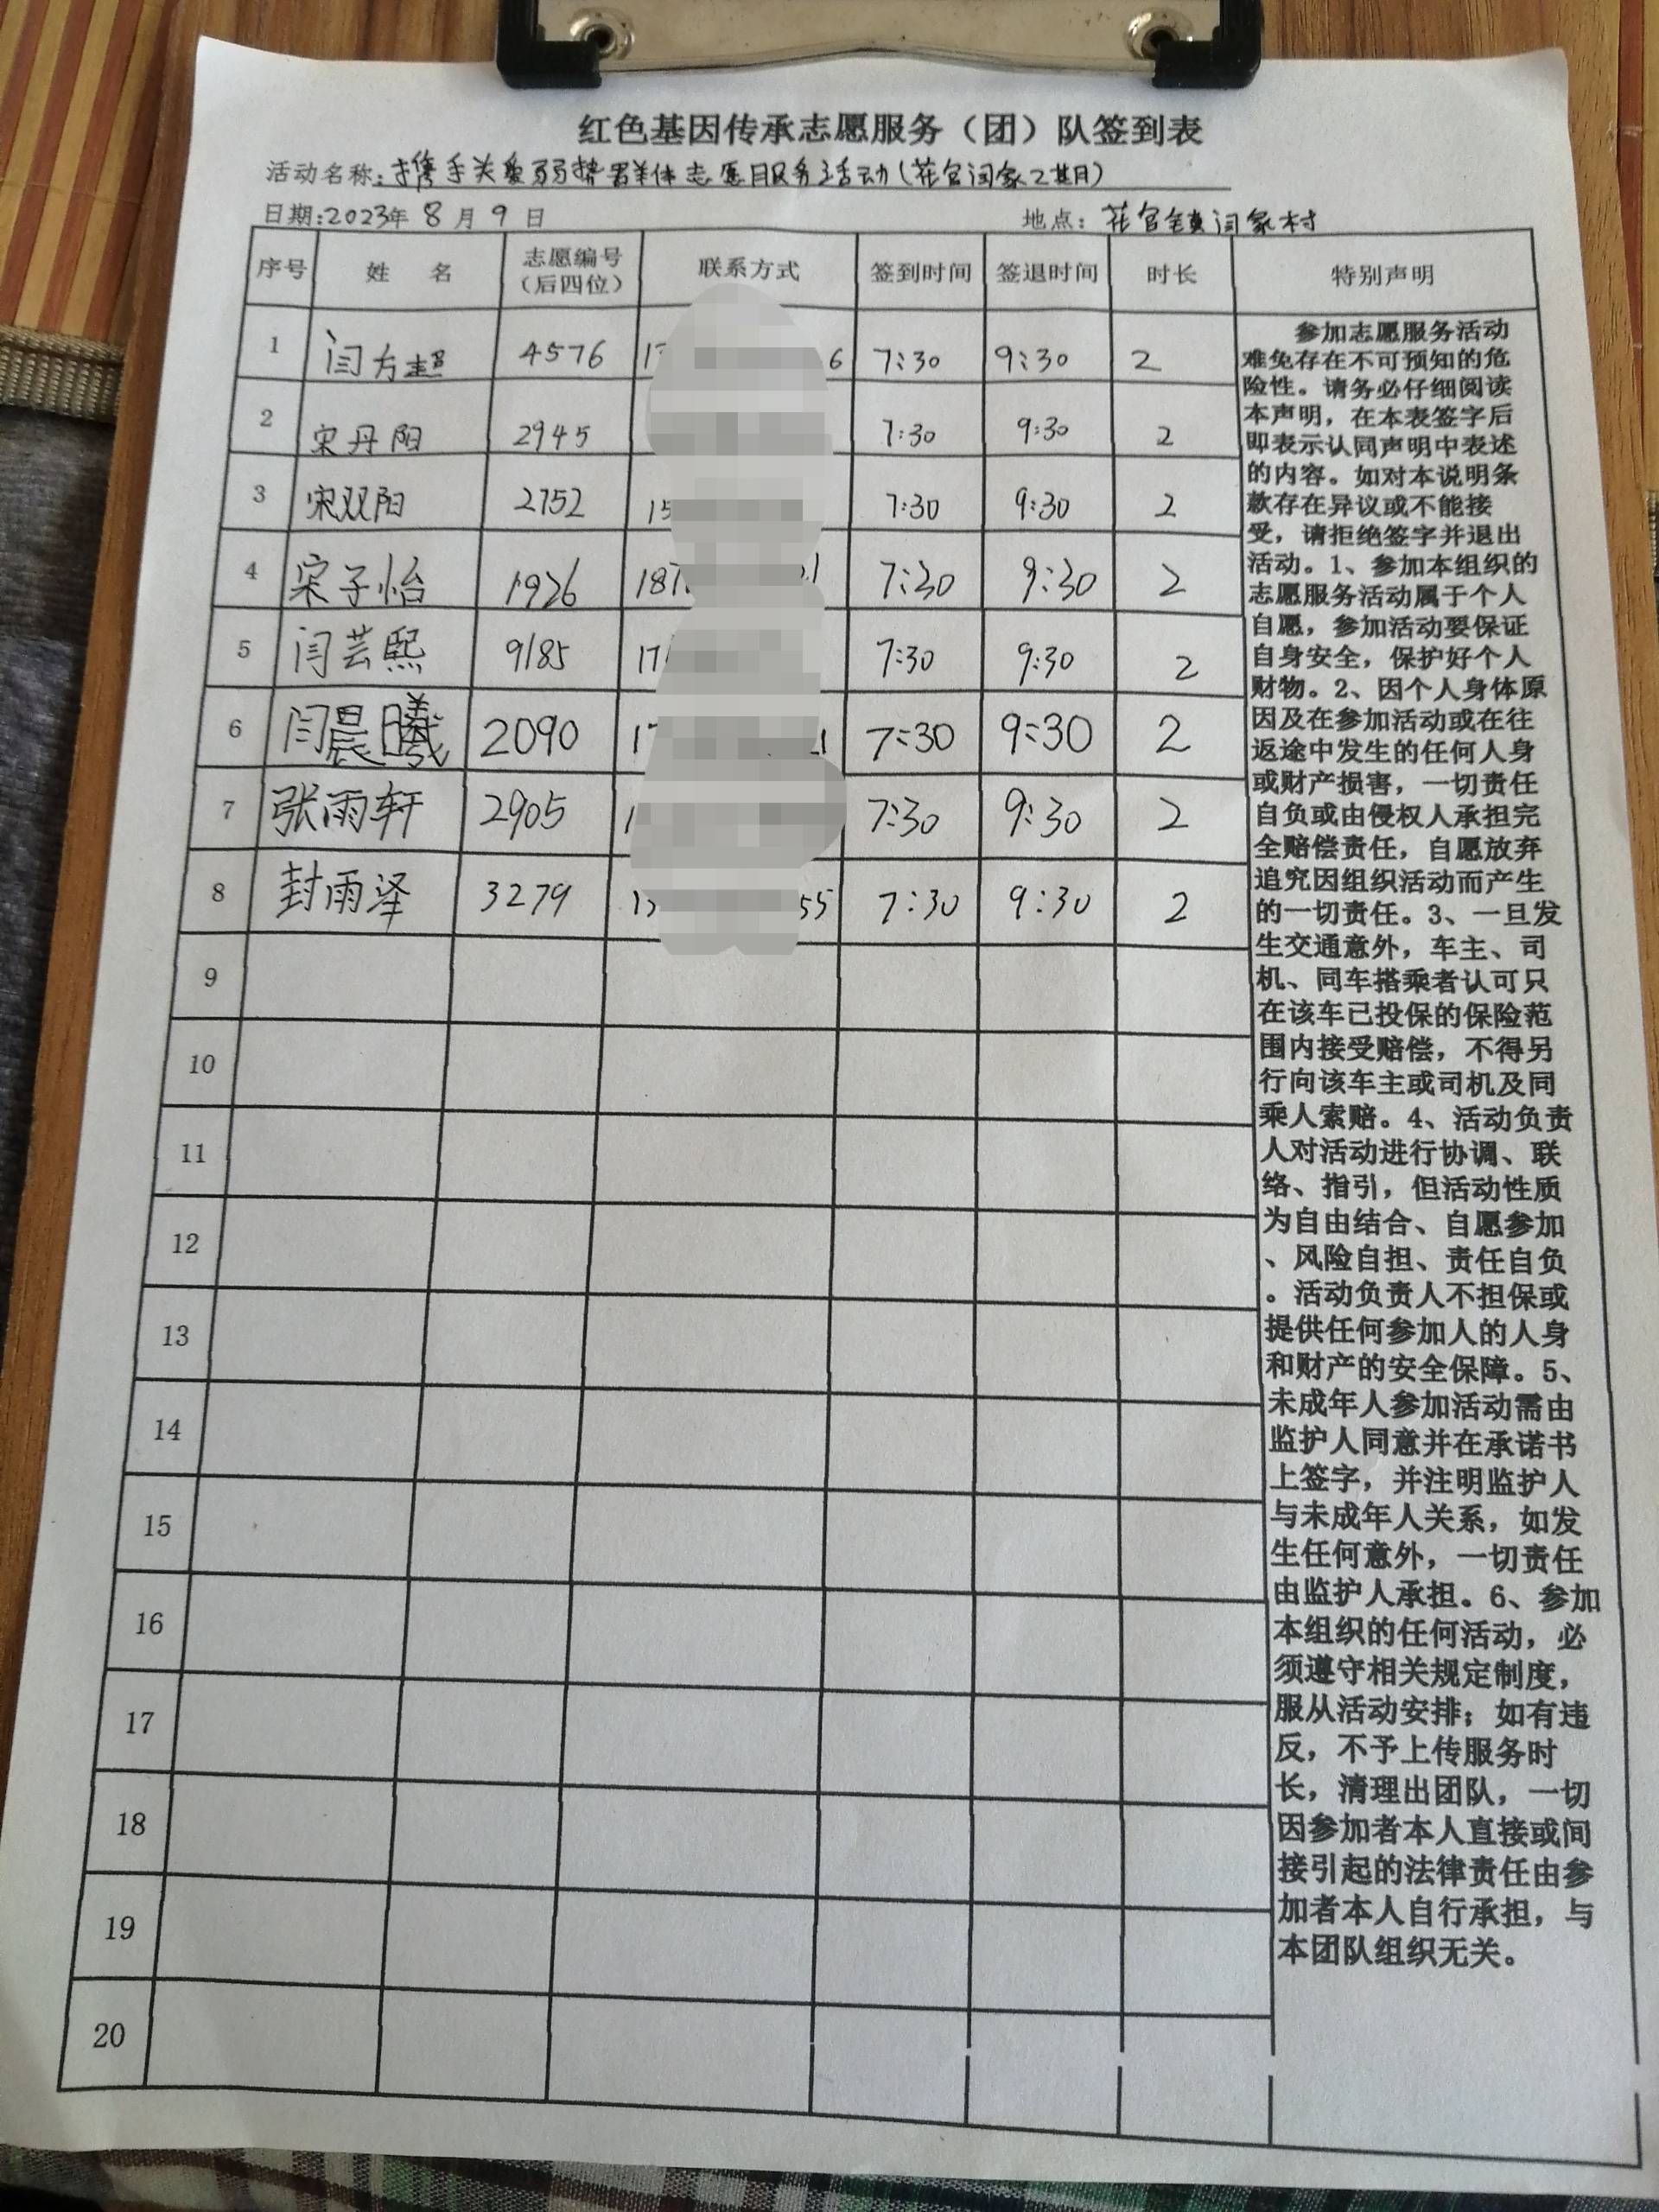 红色基因传承志愿服务（团）队签到表
活动名称:携手关爱弱势群体志愿服务活动(花官闫家2期)
日期:2023年 8 月 9 日 地点: 花官镇闫家村
序号 姓 名 志愿编号（后四位） 联系方式 签到时间 签退时间 时长 特别声明
1 闫方超 4576 7:30 9:30 2
2 宋丹阳 2945 7:30 9:30 2
3 宋双阳 2752 15 7:30 9:30 2
4 宋子怡 1926 187 7:30 9:30 2
5 闫芸熙 9185 17 7:30 9:30 2
6 闫晨曦 2090 7:30 9:30 2
7 张雨轩 2905 7:30 9:30 2
8 封雨泽 3279 55 7:30 9:30 2
9
10
11
12
13
14
15
16
17
18
19
20
参加志愿服务活动
难免存在不可预知的危
险性。请务必仔细阅读
本声明，在本表签字后
即表示认同声明中表述
的内容。如对本说明条
款存在异议或不能接
受，请拒绝签字并退出
活动。1、参加本组织的
志愿服务活动属于个人
自愿，参加活动要保证
自身安全，保护好个人
财物。2、因个人身体原
因及在参加活动或在往
返途中发生的任何人身
或财产损害，一切责任
自负或由侵权人承担完
全赔偿责任，自愿放弃
追究因组织活动而产生
的一切责任。3、一旦发
生交通意外，车主、司
机、同车搭乘者认可只
在该车已投保的保险范
围内接受赔偿，不得另
行向该车主或司机及同
乘人索赔。4、活动负责
人对活动进行协调、联
络、指引，但活动性质
为自由结合、自愿参加
、风险自担、责任自负
。活动负责人不担保或
提供任何参加人的人身
和财产的安全保障。5、
未成年人参加活动需由
监护人同意并在承诺书
上签字，并注明监护人
与未成年人关系，如发
生任何意外，一切责任
由监护人承担。6、参加
本组织的任何活动，必
须遵守相关规定制度，
服从活动安排；如有违
反，不予上传服务时
长，清理出团队，一切
因参加者本人直接或间
接引起的法律责任由参
加者本人自行承担，与
本团队组织无关。